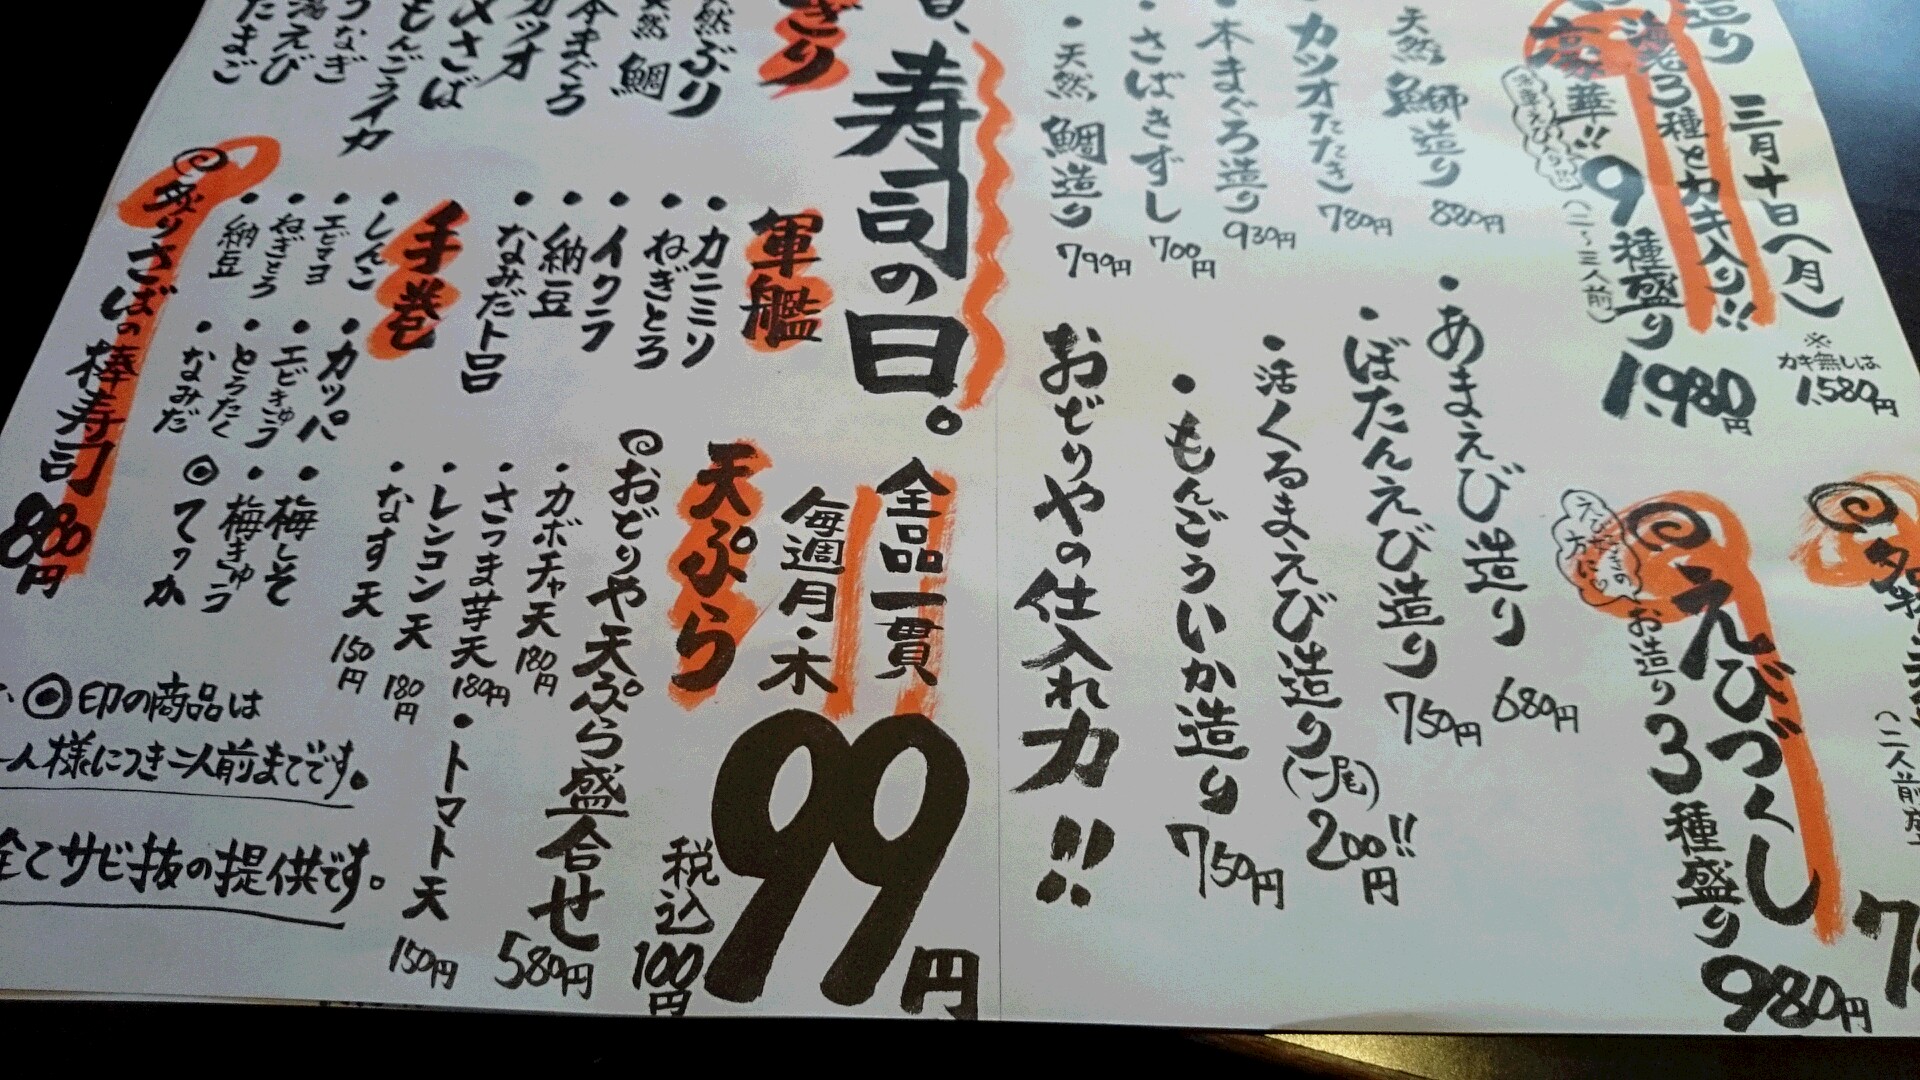 造り
三月十日(月)
海老3種とカキ入り!!
豪華!!
9種盛り
(二〜三人前)
1,980円
※カキ無しは
1,580円
天然鰤造り 880円
カツオたたき 780円
・本まぐろ造り 930円
・さばきずし 700円
・天然鯛造り 799円
えびづくし
お造り3種盛り
980円
・あまえび造り 680円
・ぼたんえび造り 750円
・活くるまえび造り(一尾) 200円!!
・もんごういか造り 750円
おどりやの仕入れ力!!
寿司の日。
全品一貫
毎週月・木
99円
税込100円
ぎり
然ぶり
天然鯛
本まぐろ
カツオ
〆さば
もんごうイカ
うなぎ
湯えび
たまご
軍艦
・カニミソ
・ねぎとろ
・イクラ
・納豆
・なみだト呂
手巻
・しんこ
・エビマヨ
・ねぎとろ
・納豆
・カッパ
・エビきゅう
・とろたく
・なみだ
・梅しそ
・梅きゅう
◎てっか
炙りさばの棒寿司
880円
天ぷら
おどりや天ぷら盛合せ 580円
・カボチャ天 180円
・さつま芋天 180円
・レンコン天 180円
・なす天 150円
・トマト天 150円
◎印の商品は
一人様につき二人前までです。
全てサビ抜の提供です。